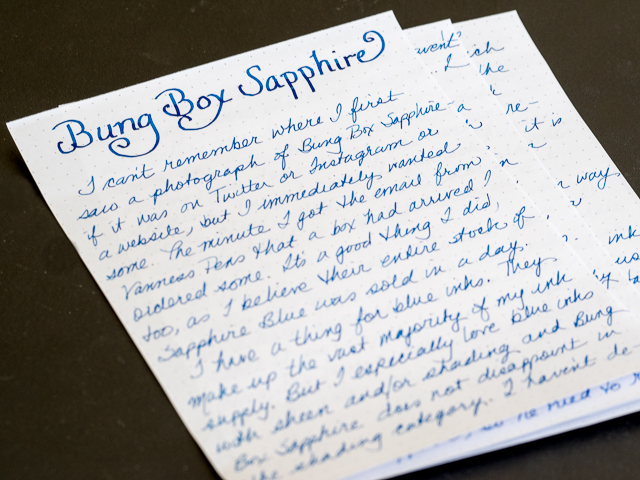 Bung Box Sapphire
I can't remember where I first
saw a photograph of Bung Box Sapphire–
if it was on Twitter or Instagram or a
a website, but I immediately wanted
some. The minute I got the email from
Vanness Pens that a box had arrived I
ordered some. Its a good thing I did,
too, as I believe their entire stock of
Sapphire Blue was sold in a day.
I have a thing for blue inks. They
make up the vast majority of my ink
supply. But I especially love blue inks
with sheen and/or shading and Bung
Box Sapphire does not disappoint in
the shading category. I havent de-
went?
I
the
re-
it is
way
ink
need to